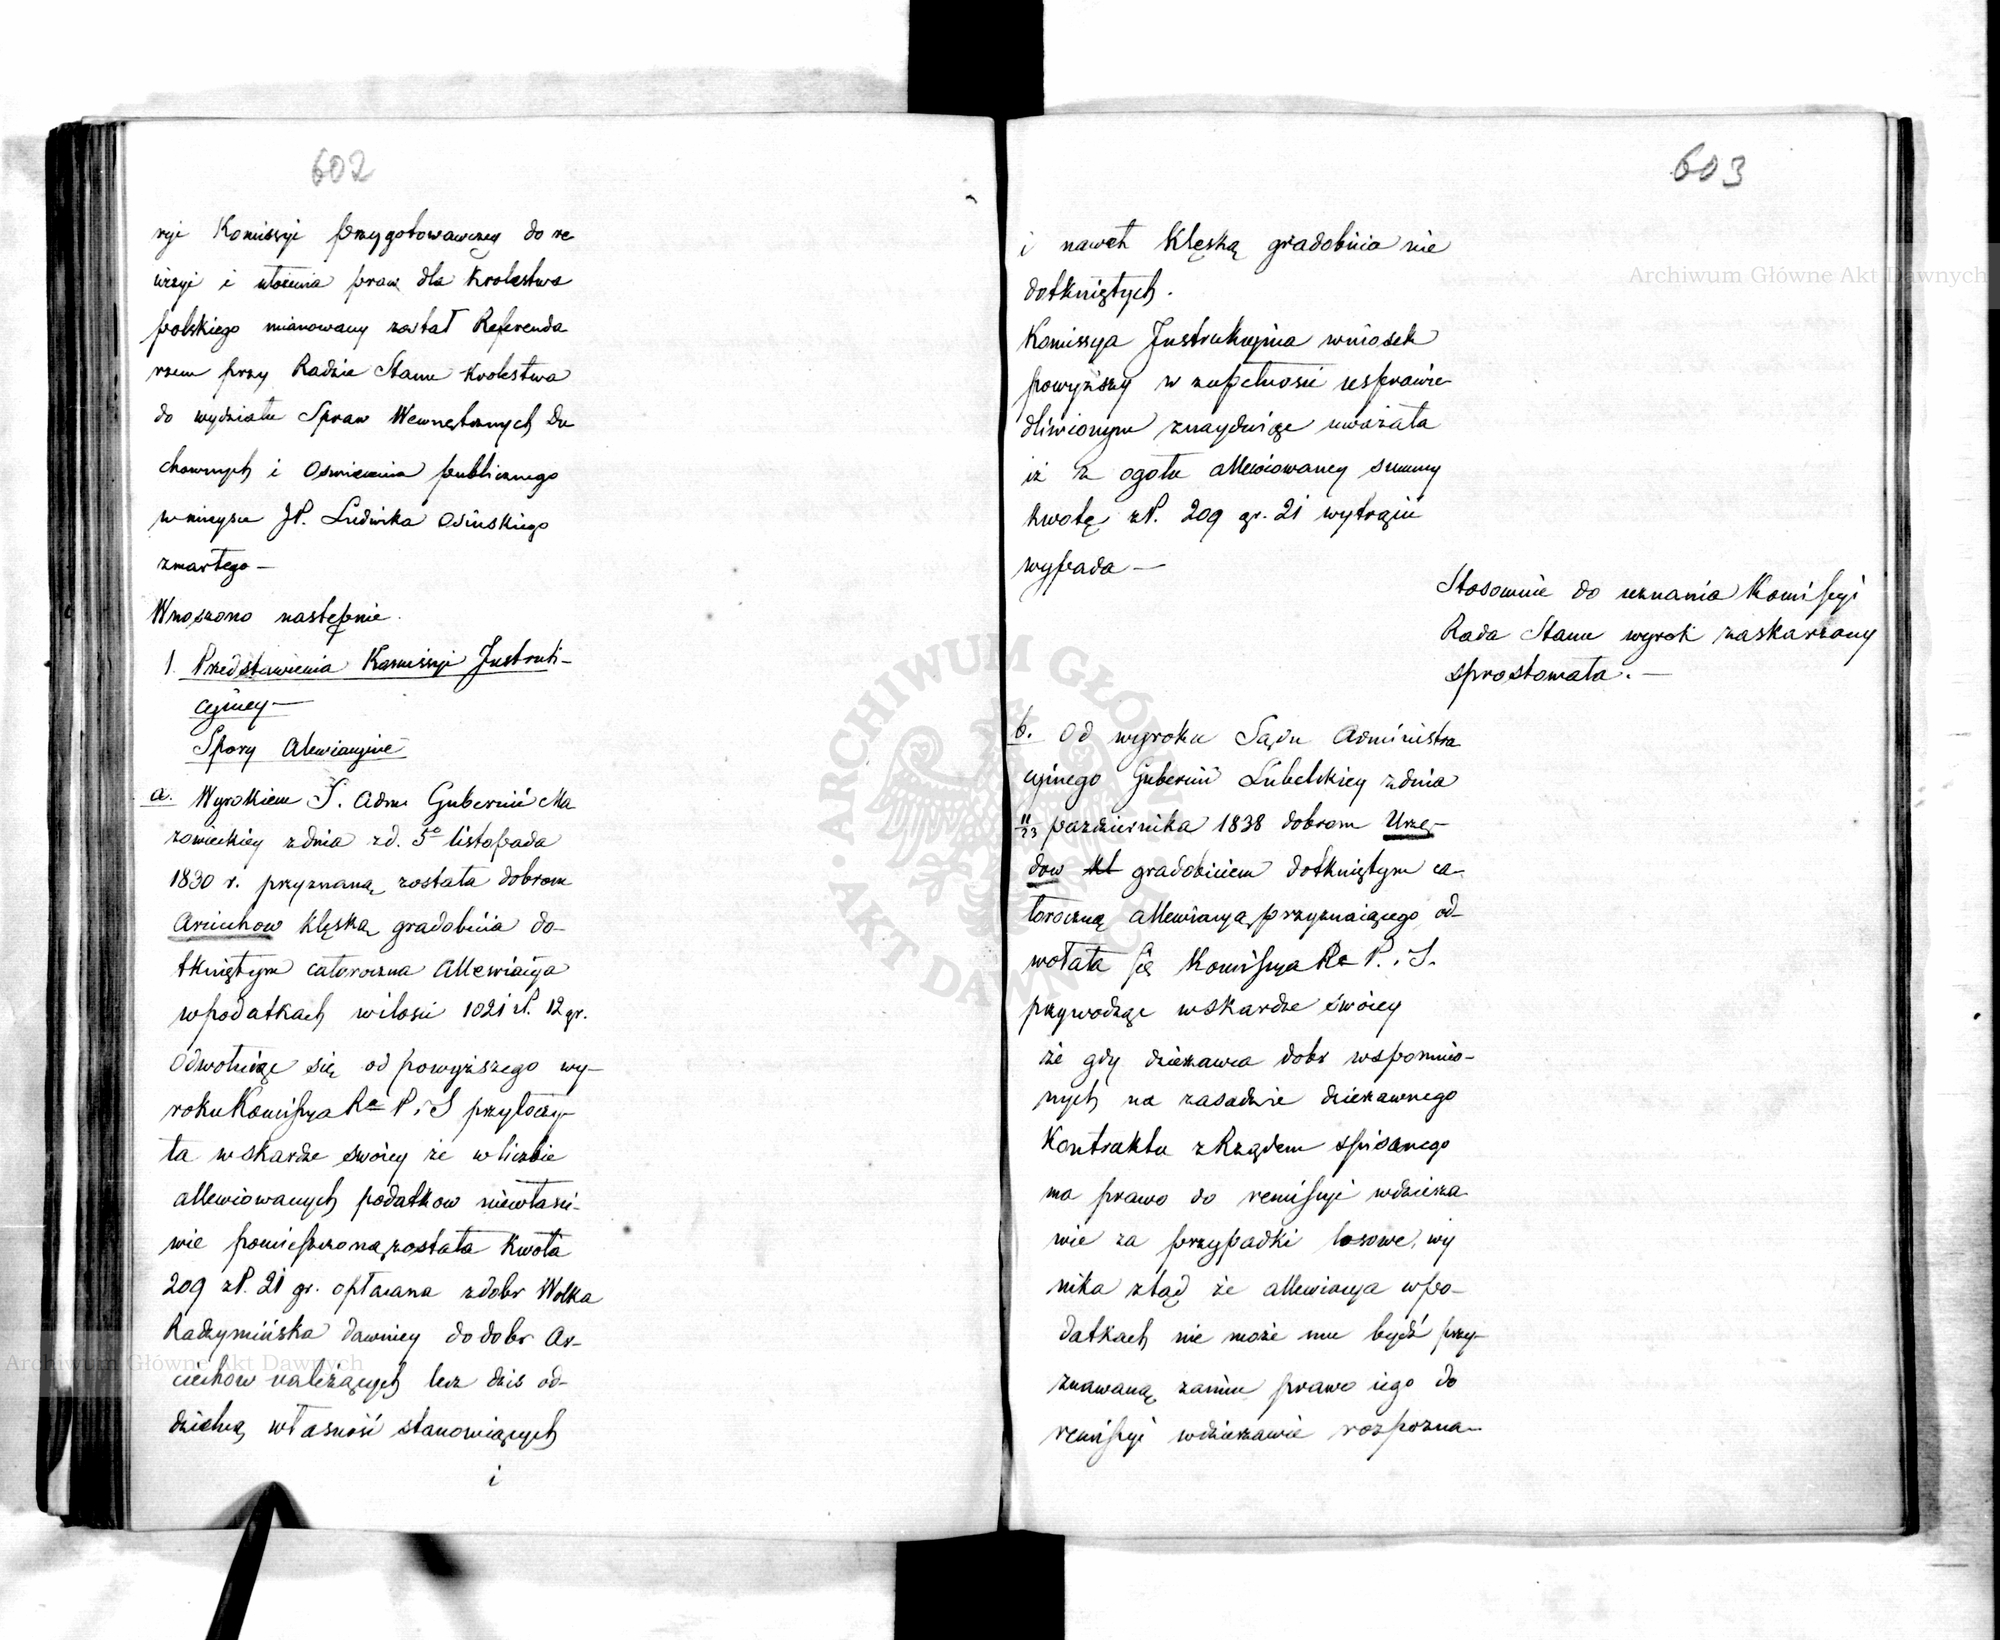 602
ryi Komissyi przygotowawczey do re
wizyi i ułożenia praw dla Krolestwa
polskiego mianowany został Referenda
rzem przy Radzie Stanu Krolestwa
do wydziału Spraw Wewnętrznych Du
chownych i Oswiecenia publicznego
w mieysce JP. Ludwika Osinskiego
zmarłego —
Wnoszono następnie.
1. Przedstawienia Komissyi Instruk-
cyjney —
Spory Alewiacyine
a. Wyrokiem S. Adm. Gubernii Ma
zowieckiey z dnia zd. 5º listopada
1830 r. przyznaną została dobrom
Arciechow klęską gradobicia do-
tkniętym całoroczna Allewiacya
w podatkach w ilosci 1021 zł. 12 gr.
Odwołuiąc się od powyższego wy-
roku Komissya Ra P. i S przytoczy-
ła w skardze swoiey że w liczbie
allewiowanych podatkow niewłasci-
wie pomieszczoną została kwota
209 zł. 21 gr. opłacana z dobr Wolka
Radzymińska dawniey do dobr Ar-
ciechow należących lecz dzis od-
dzielną własność stanowiących
i
603
i nawet klęską gradobicia nie
dotkniętych.
Komissya Instrukcyina wniosek
powyższy w zupełnosci usprawie-
dliwionym znayduiąc uważała
iż z ogołu allewiowaney summy
kwotę zł. 209 gr. 21 wytrącić
wypada —
Stosownie do uznania Komissyi
Rada Stanu wyrok zaskarżony
sprostowała. —
b. Od wyroku Sądu Administra
cyinego Gubernii Lubelskiey z dnia
11/23 pazdziernika 1838 dobrom Urzę-
dow kl gradobiciem dotkniętym ca-
łoroczną allewiacyą przyznaiącego od-
wołała się Komissya Ra P. i S.
przywodząc w skardze swoiey
że gdy dzierzawca dobr wspomnio-
nych na zasadzie dzierzawnego
Kontraktu z Rządem spisanego
ma prawo do remissyi w dzierza
wie za przypadki losowe, wy
nika ztąd że allewiacya w po-
datkach nie może mu bydź przy-
znawaną zanim prawo iego do
remissyi w dzierzawie rozpozna-
ARCHIWUM GŁÓWNE AKT DAWNYCH
Archiwum Główne Akt Dawnych
Archiwum Główne Akt Dawnych